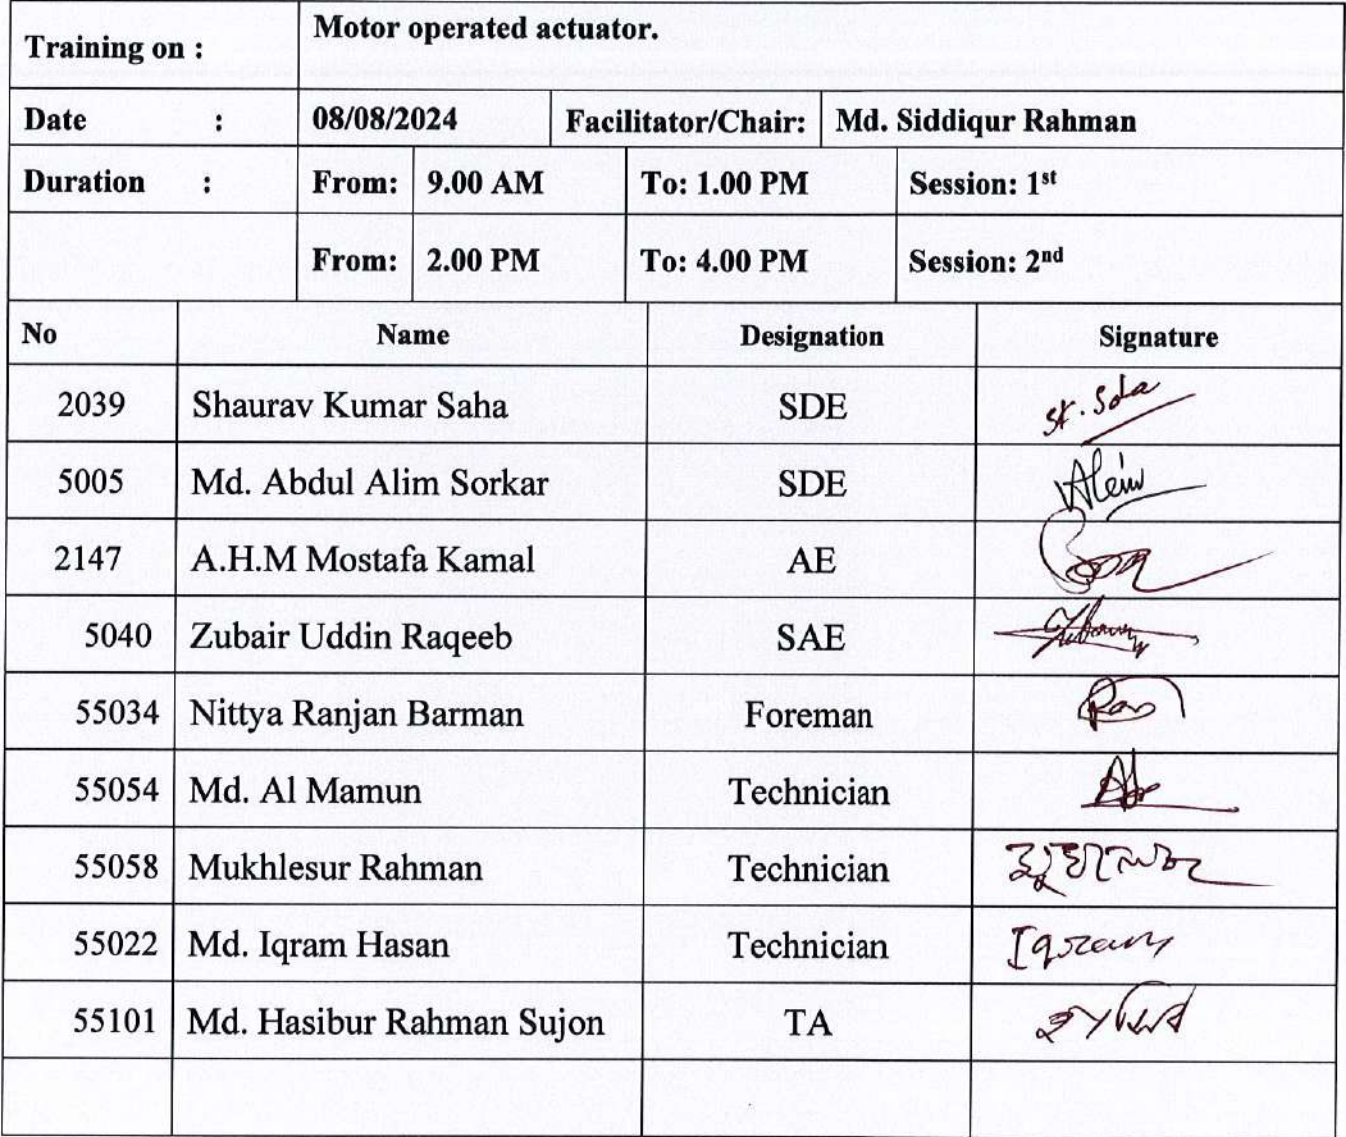 Training on : Motor operated actuator.
Date : 08/08/2024 Facilitator/Chair: Md. Siddiqur Rahman
Duration : From: 9.00 AM To: 1.00 PM Session: 1st
From: 2.00 PM To: 4.00 PM Session: 2nd
No Name Designation Signature
2039 Shaurav Kumar Saha SDE
5005 Md. Abdul Alim Sorkar SDE Alim
2147 A.H.M Mostafa Kamal AE
5040 Zubair Uddin Raqeeb SAE
55034 Nittya Ranjan Barman Foreman
55054 Md. Al Mamun Technician
55058 Mukhlesur Rahman Technician
55022 Md. Iqram Hasan Technician Iqram
55101 Md. Hasibur Rahman Sujon TA